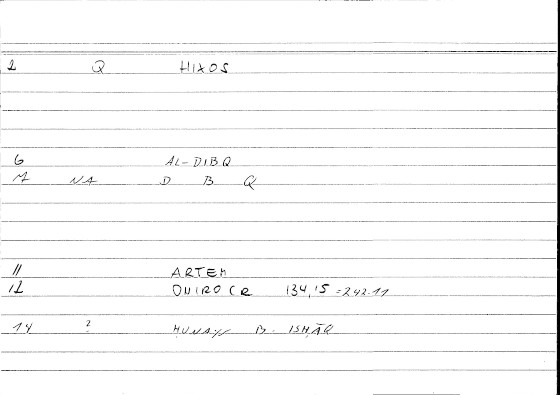 1 Q HIXOS
6 AL-DIBQ
M NA D B Q
11 ARTEM
12 ONIROCR 134,15 =242.11
14 ? ḤUNAYN B. ISḤĀQ